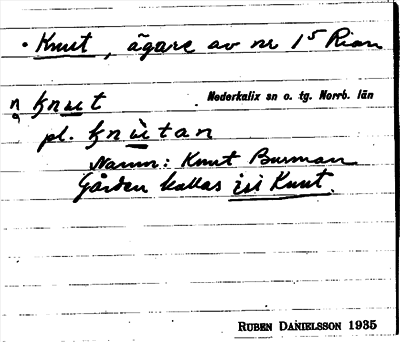 • Knut, ägare av nr 1⁵ Rian
n knut
Nederkalix sn o. tg. Norrb. län
pl. knùtan
Namn: Knut Burman
Gården kallas isi Knut.
RUBEN DANIELSSON 1935